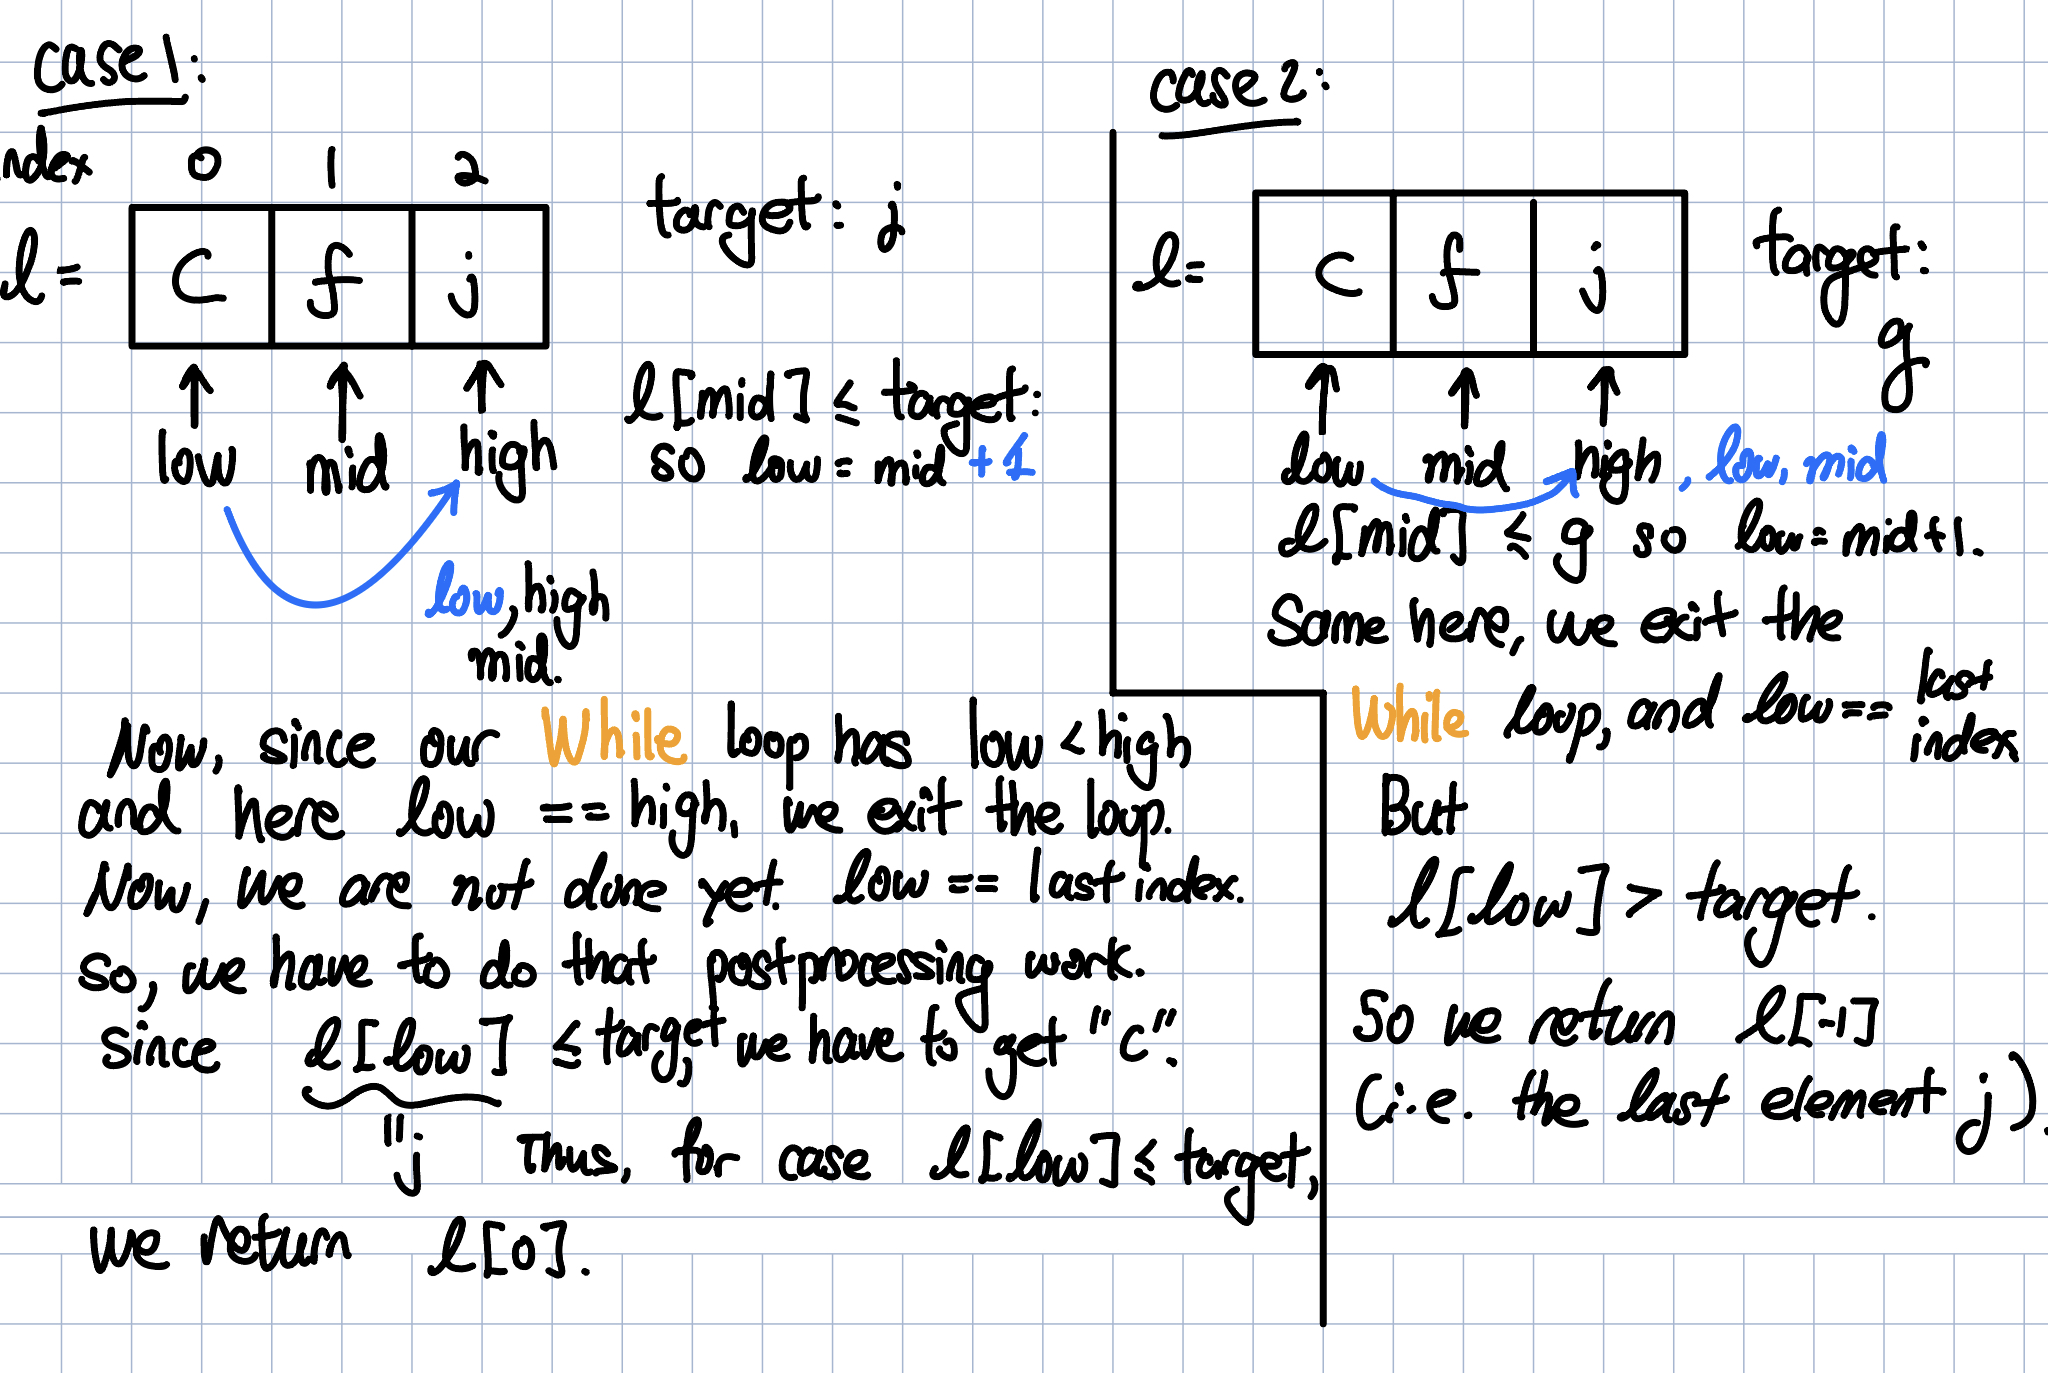 case 1:
index 0 1 2
l = c f j
target: j
low mid high
l[mid] ≤ target:
so low = mid +1
low, high
mid.
Now, since our While loop has low < high
and here low == high, we exit the loop.
Now, we are not done yet. low == last index.
so, we have to do that postprocessing work.
since l[low] ≤ target, we have to get "c".
"j Thus, for case l[low] ≤ target,
we return l[0].
case 2:
l= c f j
target:
g
low mid high, low, mid
l[mid] ≤ g so low = mid+1.
Same here, we exit the
While loop, and low == last
index
But
l[low] > target.
So we return l[-1]
(i.e. the last element j).